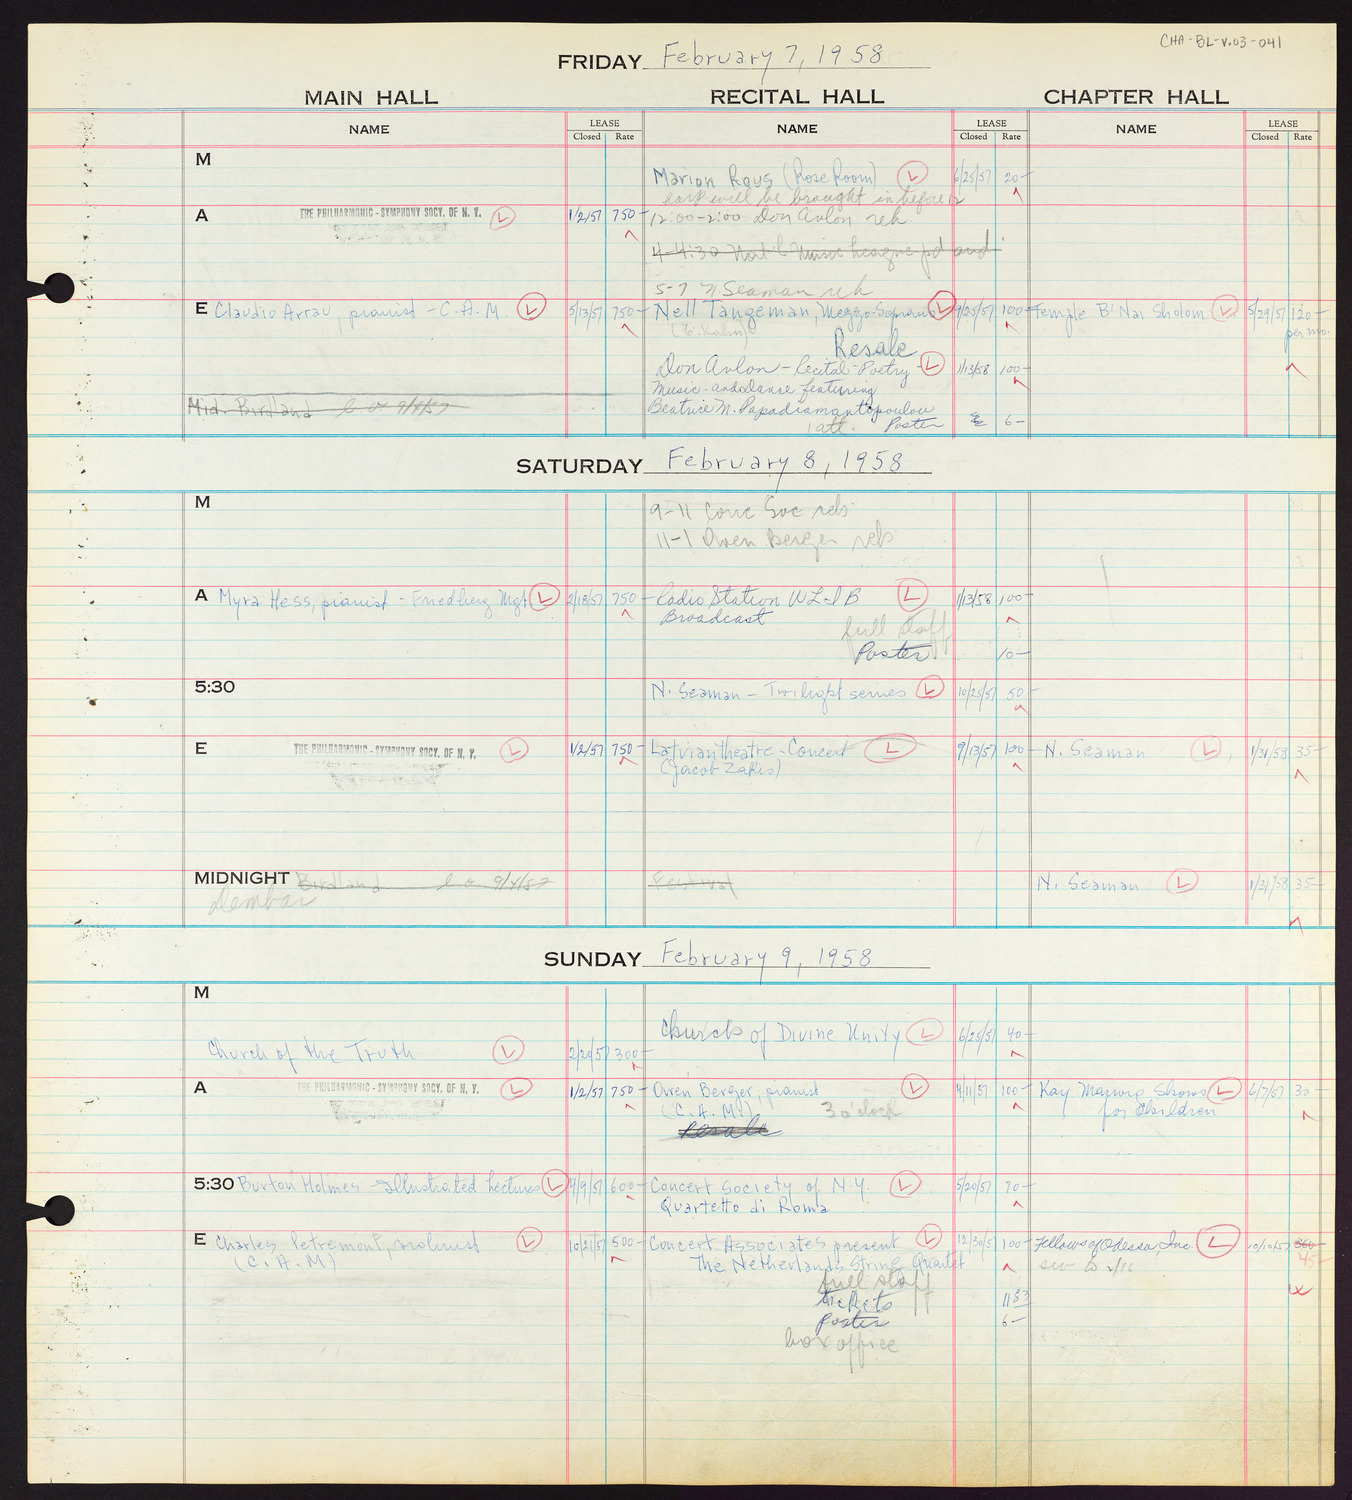 CHA-BL-V.03-041
FRIDAY February 7, 1958
MAIN HALL RECITAL HALL CHAPTER HALL
NAME LEASE Closed Rate NAME LEASE Closed Rate NAME LEASE Closed Rate
M
Marion Rous (Rose Room) L 6/25/57 20-
will be brought in before 12
A THE PHILHARMONIC-SYMPHONY SOCY. OF N. Y. L 1/2/57 750- 12:00-2:00 Don Avlon reh
4-4:30 Nat'l Music League pd aud
5-7 N Seaman reh
E Claudio Arrau, pianist - C.A.M. L 5/13/57 750- Nell Tangeman, Mezzo-Soprano L 9/25/57 100- Temple B'Nai Sholom L 5/29/57 120-
per mo.
Resale
Don Avlon - Recital-Poetry- L 1/13/58 100-
Music-and Dance featuring
Mid. Birdland 9/4/57 Beatrice M. Papadiamantopoulou
1 att. Poster 6-
SATURDAY February 8, 1958
M
9-11 Conc Soc reh
11-1 Owen Berger reh
A Myra Hess, pianist - Friedberg Mgt L 2/18/57 750- Radio Station WLIB L 1/13/58 100-
Broadcast
full staff
Poster 10-
5:30 N. Seaman - Twilight series L 10/25/57 50-
E THE PHILHARMONIC-SYMPHONY SOCY. OF N. Y. L 1/2/57 750- Latvian theatre-Concert L 9/13/57 100- N. Seaman L 1/31/58 35-
(Jacob Zakis)
MIDNIGHT Birdland 9/4/57 Festival N. Seaman L 1/31/58 35-
Dembar
SUNDAY February 9, 1958
M
Church of Divine Unity L 6/25/57 40-
Church of the Truth L 2/20/57 300-
A THE PHILHARMONIC-SYMPHONY SOCY. OF N. Y. L 1/2/57 750- Owen Berger, pianist L 4/11/57 100- Kay Shows L 6/7/57 30
(C.A.M.) 3 o'clock for Children
Resale
5:30 Burton Holmes - Illustrated Lectures L 4/9/57 600- Concert Society of N.Y. L 5/20/57 70-
Quartetto di Roma
E Charles Petremont, violinist L 10/21/57 500- Concert Associates present L 12/30/57 100- Fellows of Odessa, Inc. L 10/10/57 360
(C.A.M) The Netherlands String Quartet 45
full staff
tickets 11 83
Poster 6-
box office